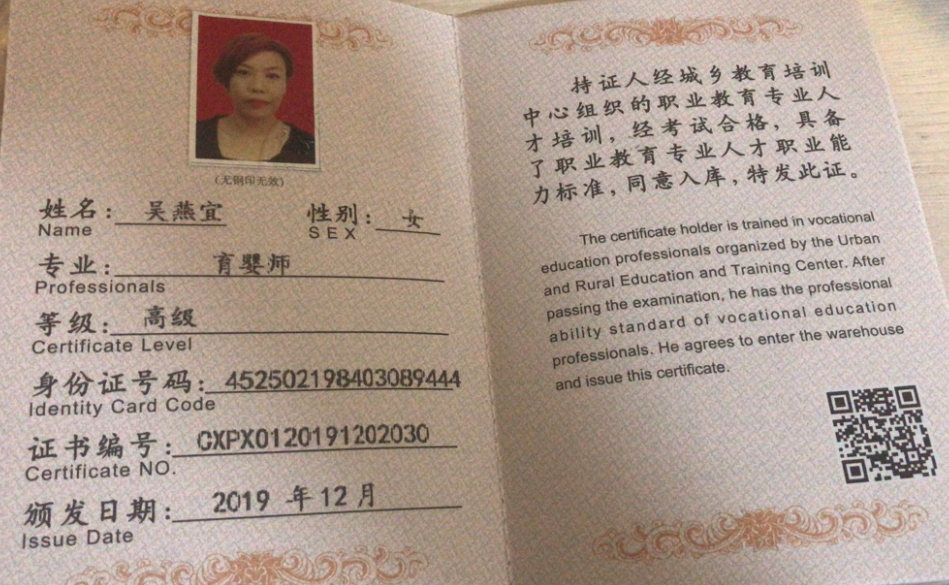 (无钢印无效)
姓名: 吴燕宜 性别: 女
Name SEX
专业: 育婴师
Professionals
等级: 高级
Certificate Level
身份证号码: 452502198403089444
Identity Card Code
证书编号: CXPX0120191202030
Certificate NO.
颁发日期: 2019 年 12 月
Issue Date
持证人经城乡教育培训
中心组织的职业教育专业人
才培训，经考试合格，具备
了职业教育专业人才职业能
力标准，同意入库，特发此证。
The certificate holder is trained in vocational
education professionals organized by the Urban
and Rural Education and Training Center. After
passing the examination, he has the professional
ability standard of vocational education
professionals. He agrees to enter the warehouse
and issue this certificate.